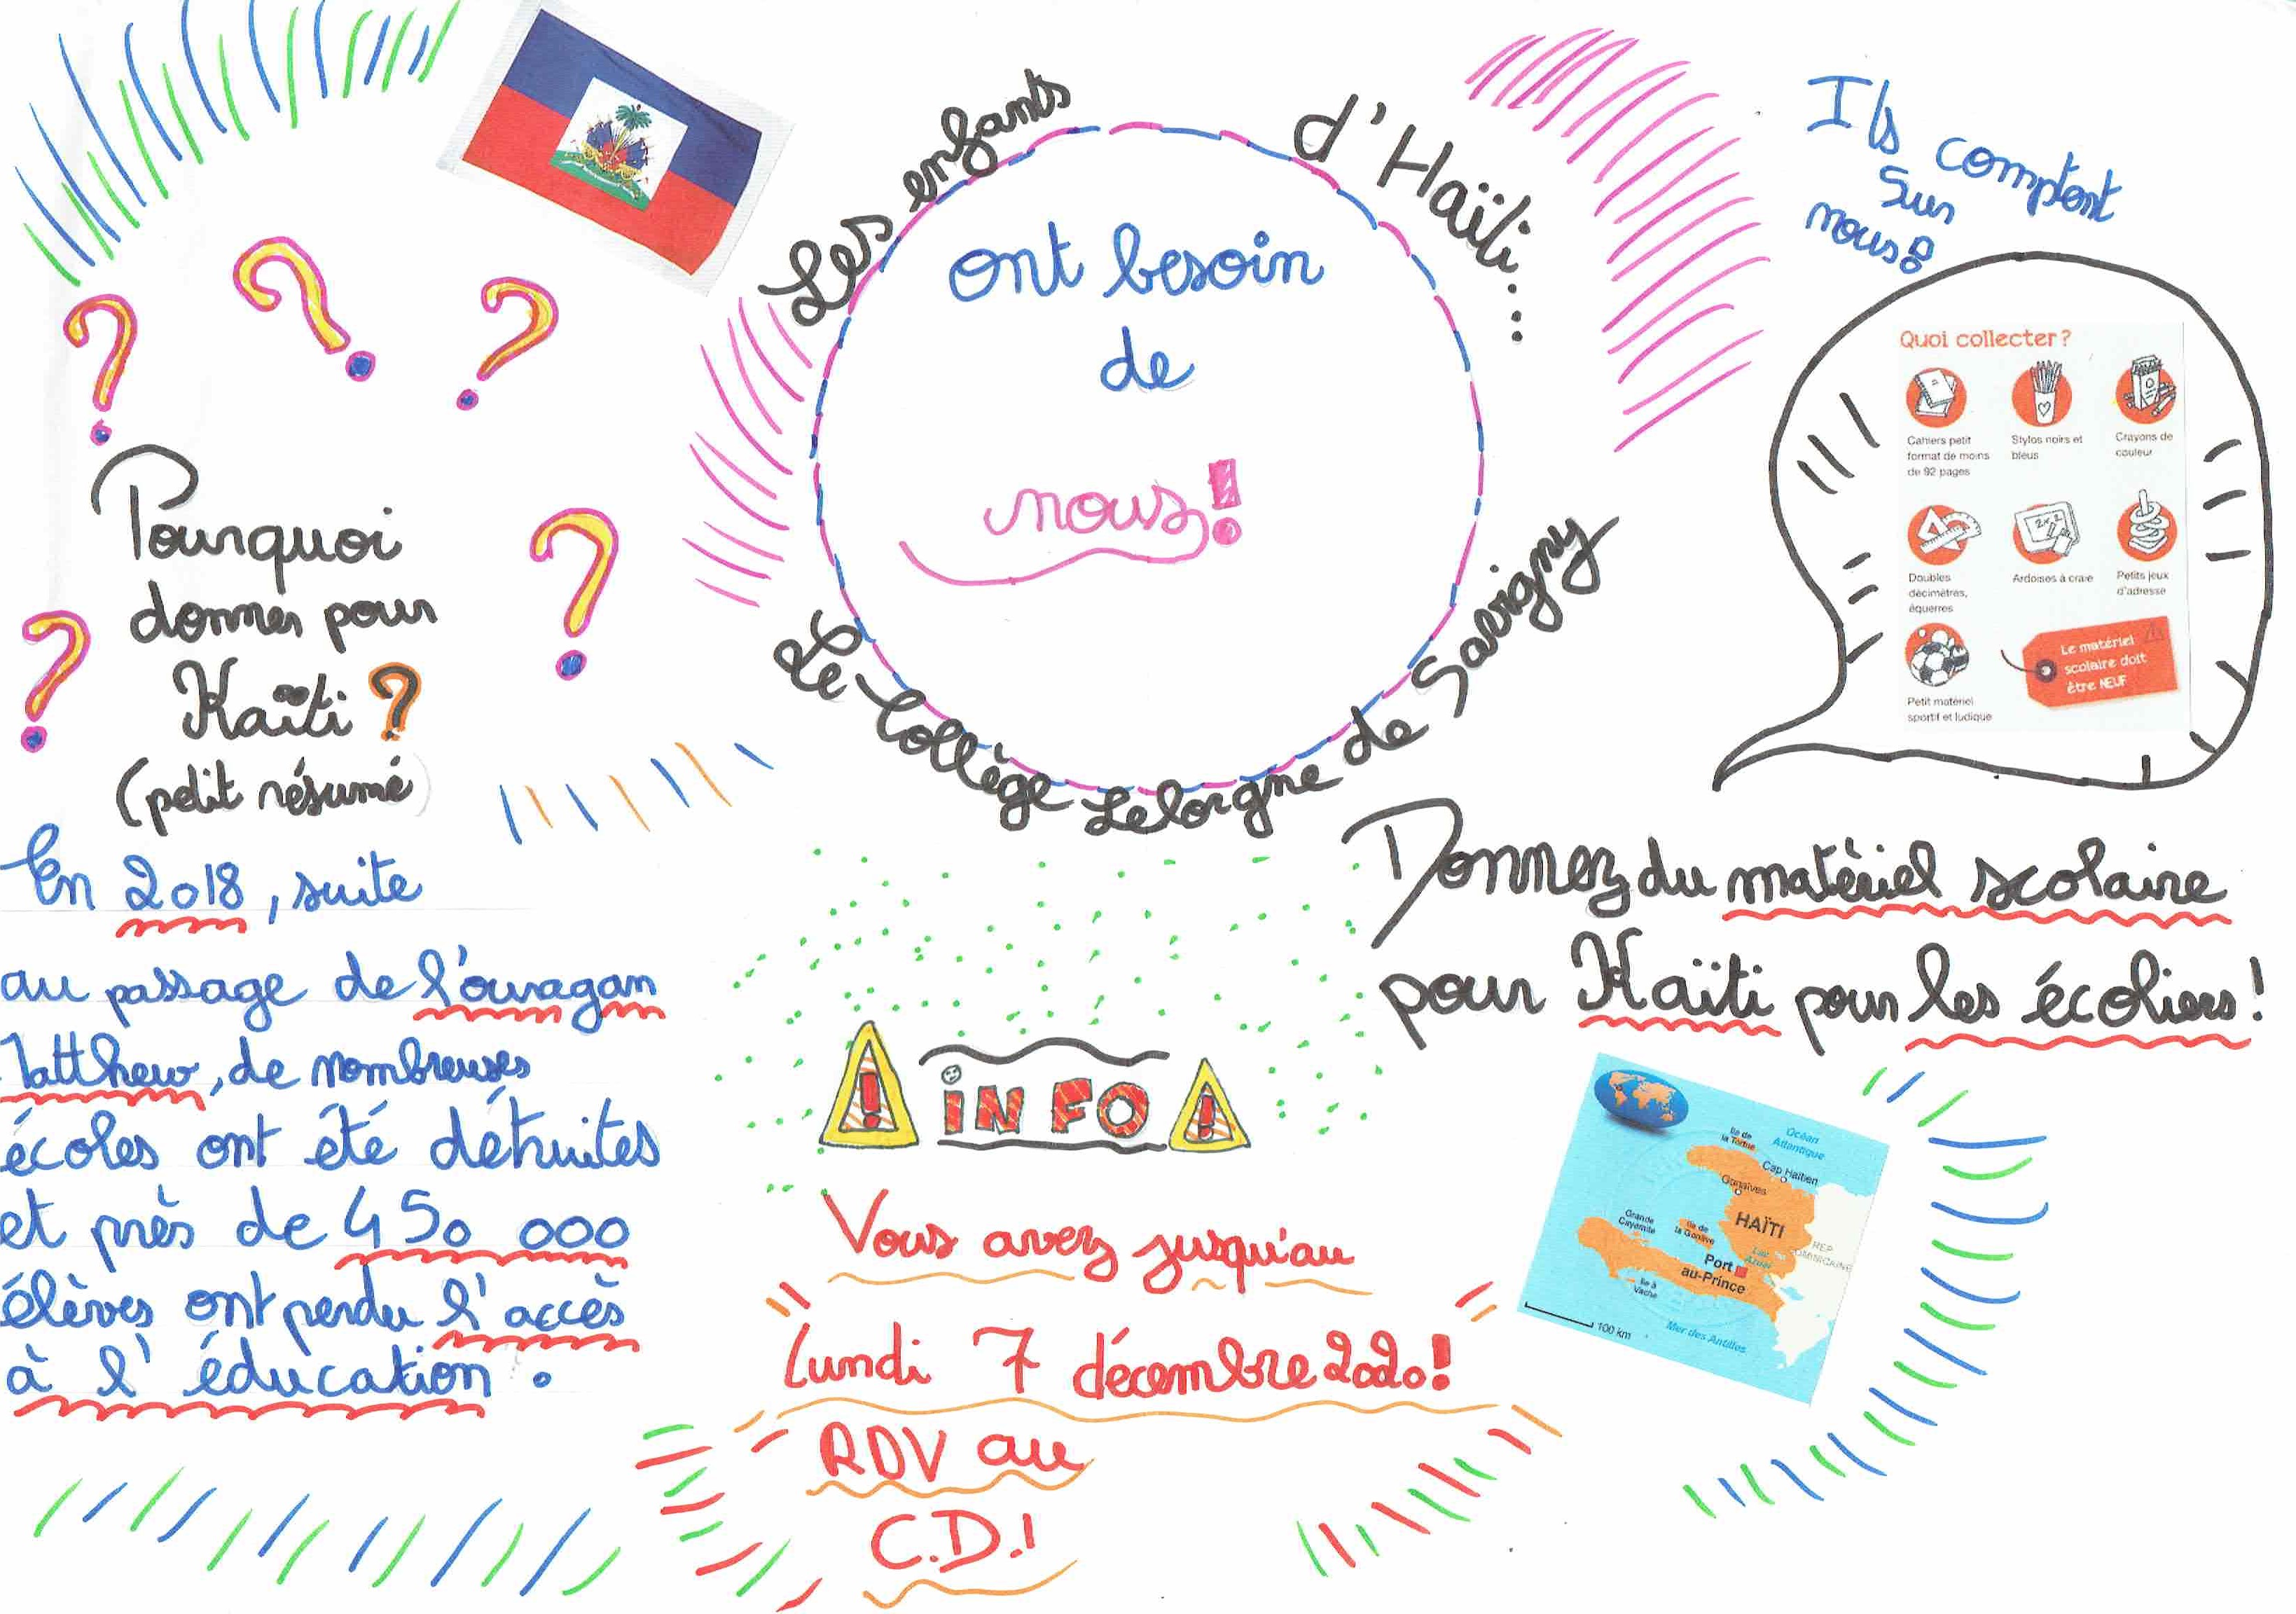 Les enfants d'Haïti...
ont besoin
de
nous!
Le Collège Lelorgne de Savigny
Ils comptent
sur
nous!
Quoi collecter?
Cahiers petit
format de moins
de 92 pages
Stylos noirs et
bleus
Crayons de
couleur
Doubles
décimètres,
équerres
Ardoises à craie
Petits jeux
d'adresse
Petit matériel
sportif et ludique
Le matériel
scolaire doit
être NEUF
Pourquoi
donner pour
Haïti ?
(petit résumé)
En 2018, suite
au passage de l'ouragan
Matthew, de nombreuses
écoles ont été détruites
et près de 450 000
élèves ont perdu l'accès
à l'éducation.
Donnez du matériel scolaire
pour Haïti pour les écoliers!
INFO
Vous avez jusqu'au
lundi 7 décembre 2020!
RDV au
C.D.I
Océan
Atlantique
Ile de
la Tortue
Cap Haïtien
Gonaïves
HAÏTI
Grande
Cayemite
Ile de
la Gonâve
Lac
Azuéi
REP.
DOMINICAINE
Port
au-Prince
Ile à
Vache
100 km
Mer des Antilles